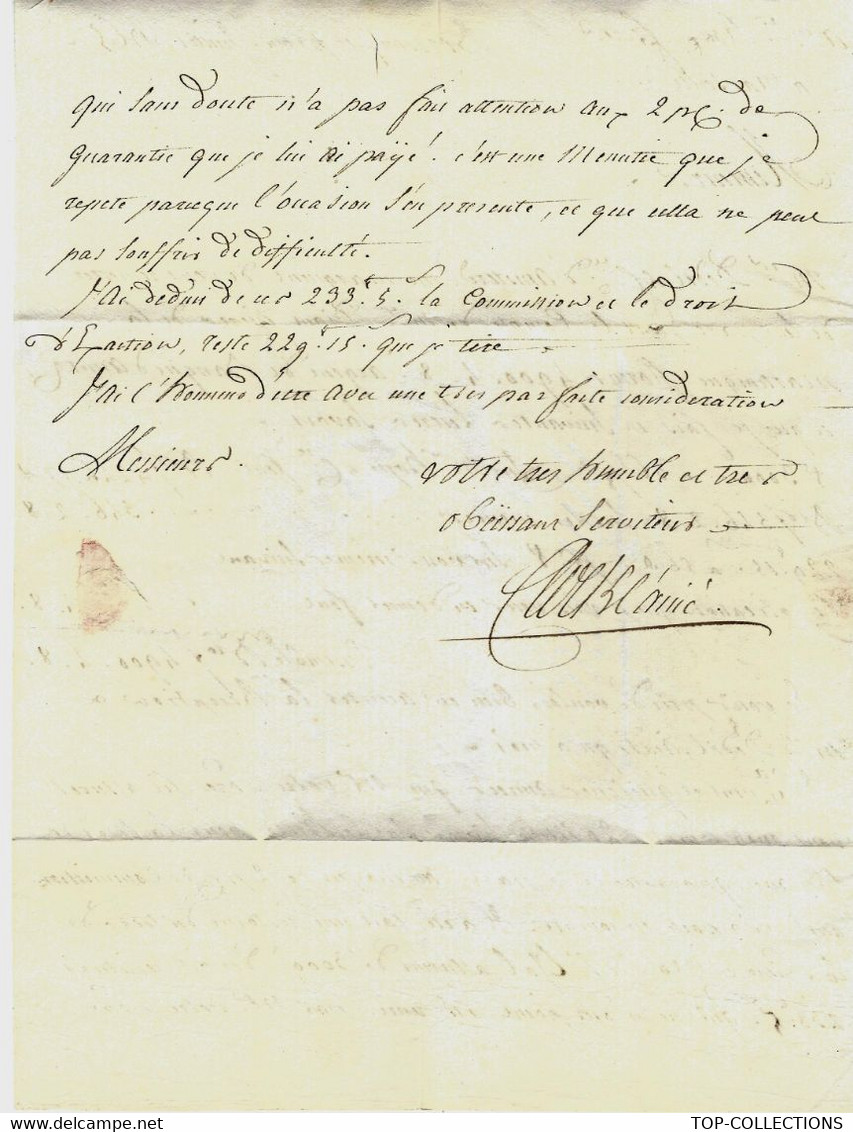 qui sans doute n'a pas fait attention aux 2 pc. de
guarantie que je lui ai payé. c'est une Menutie que je
repete parceque l'occasion s'en presente, et que cella ne peut
pas souffrir de difficulté.
J'ai deduit de ces 233.5. la Commission et le droit
d'Exaction, reste 229.15. que je tire
J'ai l'honneur d'etre avec une tres parfaite consideration
Messieurs.
votre tres humble et tres
obeissant Serviteur
l'ainé.
TOP-COLLECTIONS